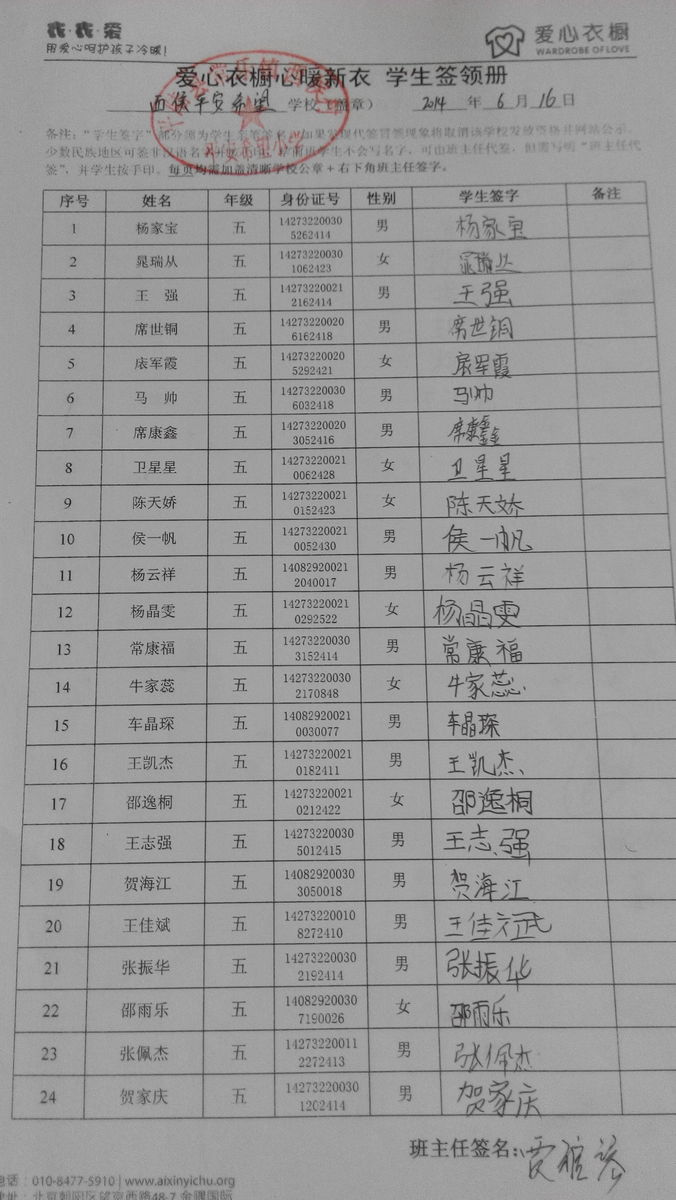 衣·衣·爱
用爱心呵护孩子冷暖!
爱心衣橱
WARDROBE OF LOVE
爱心衣橱心暖新衣 学生签领册
西侯平安希望 学校(盖章) 2014 年 6 月 16 日
少数民族地区可签非汉语名
签”,并学生按手印。每页均需加盖清晰学校公章+右下角班主任签字。
序号 姓名 年级 身份证号 性别 学生签字 备注
1 杨家宝 五 14273220030 5262414 男 杨家宝
2 晁瑞丛 五 14273220030 1062423 女 晁瑞丛
3 王 强 五 14273220021 2162414 男 王强
4 席世铜 五 14273220020 6162418 男 席世铜
5 军霞 五 14273220020 5292421 女 军霞
6 马 帅 五 14273220030 6032418 男 马帅
7 席康鑫 五 14273220020 3052416 男 席康鑫
8 卫星星 五 14273220021 0062428 女 卫星星
9 陈天娇 五 14273220021 0152423 女 陈天娇
10 侯一帆 五 14273220021 0052430 男 侯一帆
11 杨云祥 五 14082920021 2040017 男 杨云祥
12 杨晶雯 五 14273220021 0292522 女 杨晶雯
13 常康福 五 14273220030 3152414 男 常康福
14 牛家蕊 五 14273220030 2170848 女 牛家蕊
15 车晶琛 五 14082920021 0030077 男 车晶琛
16 王凯杰 五 14273220021 0182411 男 王凯杰
17 邵逸桐 五 14273220021 0212422 女 邵逸桐
18 王志强 五 14273220030 5012415 男 王志强
19 贺海江 五 14082920030 3050018 男 贺海江
20 王佳斌 五 14273220010 8272410 男 王佳斌
21 张振华 五 14273220030 2192414 男 张振华
22 邵雨乐 五 14082920030 7190026 女 邵雨乐
23 张佩杰 五 14273220011 2272413 男 张佩杰
24 贺家庆 五 14273220030 1202414 男 贺家庆
班主任签名:
电话:010-8477-5910 | www.aixinyichu.org